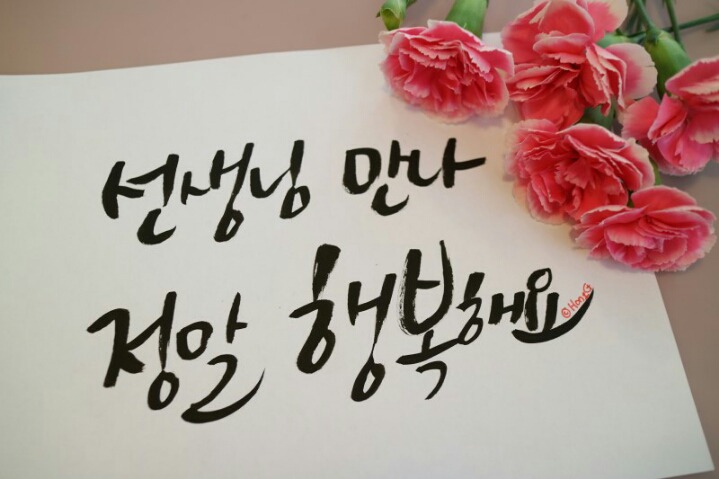 선생님 만나
정말 행복해요
©HongG